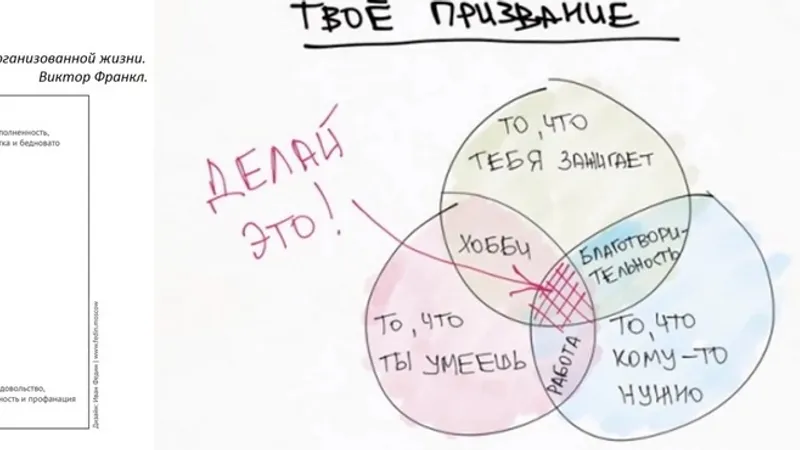 рганизованной жизни.
Виктор Франкл.
полненность,
тка и бедновато
довольство,
ность и профанация
Дизайн: Иван Федин | www.fedin.moscow
ТВОЁ ПРИЗВАНИЕ
ДЕЛАЙ
ЭТО!
ТО, ЧТО
ТЕБЯ ЗАЖИГАЕТ
ХОББИ
БЛАГОТВОРИ-
ТЕЛЬНОСТЬ
ТО, ЧТО
ТЫ УМЕЕШЬ
РАБОТА
ТО, ЧТО
КОМУ-ТО
НУЖНО